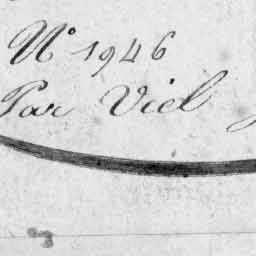 N° 1946
Par Viel